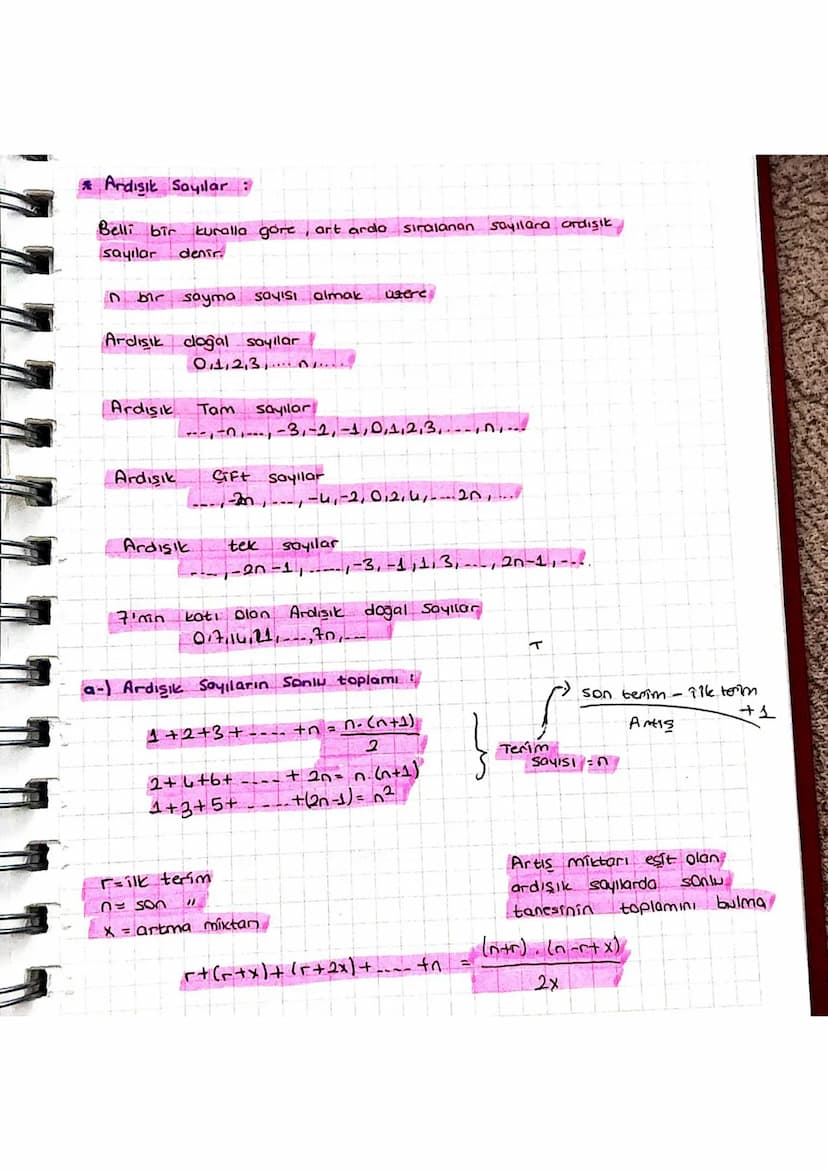 * Ardışık Sayılar :
Belli bir kuralla göre, art arda sıralanan sayılara ardışık
sayılar denir.
n bir sayma sayısı olmak üzere
Ardışık doğal sayılar
0,1,2,3,.... n,....
Ardışık Tam sayılar
...,-n,...,-3,-2,-1,0,1,2,3,...,n,...
Ardışık Çift sayılar
...,-2n,...,-4,-2,0,2,4,....2n,...
Ardışık tek sayılar
...,-2n-1,......,-3,-1,1,3,...,2n-1,....
7'nin katı olan Ardışık doğal sayılar
0,7,14,21,...,7n,...
T
a-) Ardışık Sayıların Sonlu toplamı :
1+2+3+ .... +n = n.(n+1)/2
2+4+6+ .... + 2n = n.(n+1)
1+3+5+ ..... +(2n-1) = n²
Terim
sayısı = n
son terim - ilk terim / Artış +1
r = ilk terim
n = son "
x = artma miktarı
Artış miktarı eşit olan
ardışık sayılarda sonlu
tanesinin toplamını bulma
r+(r+x)+(r+2x)+.....+n = (n+r).(n-r+x)/2x